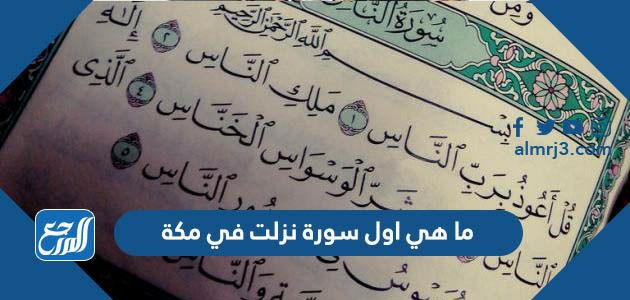 وَمِن
سُورَةُ النَّاسِ
بِسْمِ ٱللَّهِ ٱلرَّحْمَٰنِ ٱلرَّحِيمِ
قُلْ أَعُوذُ بِرَبِّ ٱلنَّاسِ ١ مَلِكِ ٱلنَّاسِ ٢ إِلَٰهِ
ٱلنَّاسِ شَرِّ ٱلْوَسْوَاسِ ٱلْخَنَّاسِ ٤ ٱلَّذِى
ٱلنَّاسِ ٥
وَٱلنَّاسِ
almrj3.com
ما هي اول سورة نزلت في مكة
المرجع